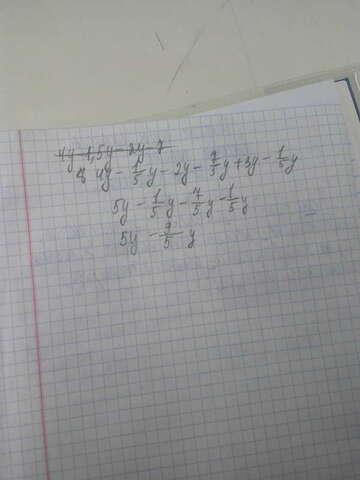 4y-1,5y-2y-7
4y - 1/5 y - 2y - 7/5 y + 3y - 1/5 y
5y - 1/5 y - 7/5 y - 1/5 y
5y - 9/5 y